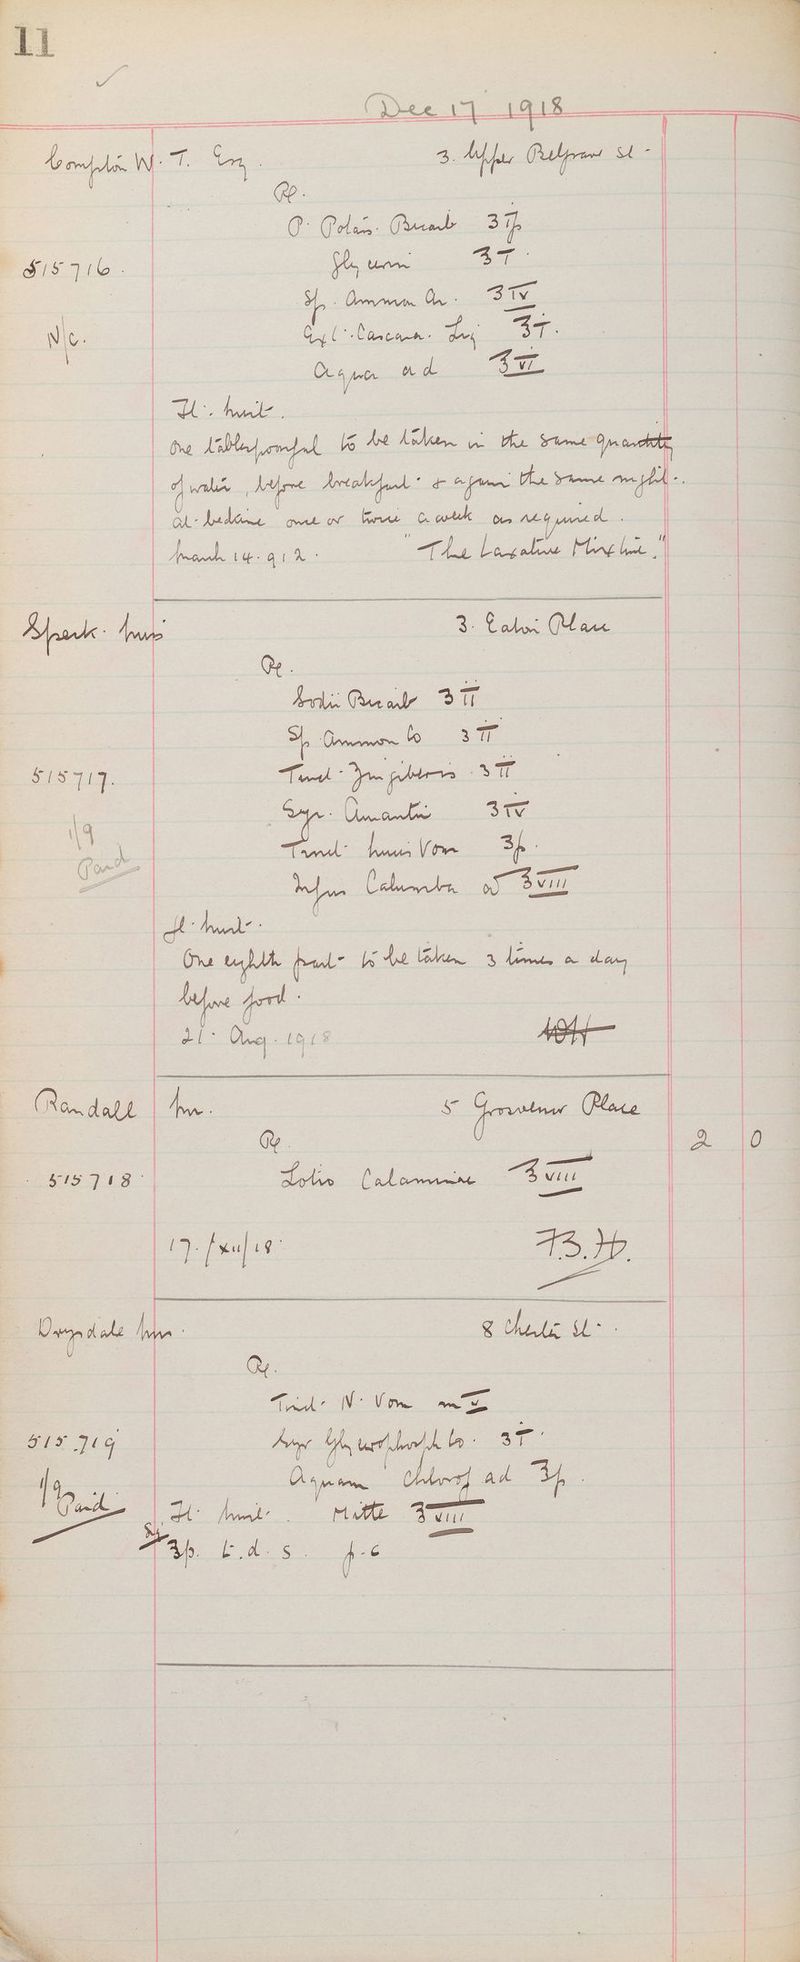 11
Dec 17 1918
Compton W. T. Esq. 3. Upper Belgrave St.
Rx.
P. Potass. Bicarb ʒiſs
515716. Glycerin ʒi.
Sp. Ammon Ar. ʒiv
N/C. Ext. Cascara. Liq ʒi.
Aqua ad ℥vi
Ft. mist.
One tablespoonful to be taken in the same quantity
of water, before breakfast & again the same night.
at bedtime once or twice a week as required.
March 14. 912. "The Laxative Mixture."
Speck. Miss 3. Eaton Place
Rx.
Sodii Bicarb ʒii
Sp. Ammon Co ʒii
515717. Tinct. Zingiberis ʒii
Syr. Aurantii ʒiv
1/9 Tinct. Nucis Vom ʒſs.
Paid
Infus Calumba ad ℥viii
Ft. mist.
One eighth part to be taken 3 times a day
before food.
21. Aug. 1918 WH
Randall Mr. 5 Grosvenor Place
Rx 2 0
515718. Lotio Calaminae ℥viii
17./xii/18. F.B.H.
Drysdale Mrs. 8 Chester St.
Rx.
Tinct. N. Vom mv
515.719 Syr Glycerophosph Co. ʒi.
Aquam Chlorof ad ℥ſs.
1/9 Paid Ft. mist. Mitte ℥viii
Sig ℥ſs. t.d.s. p.c